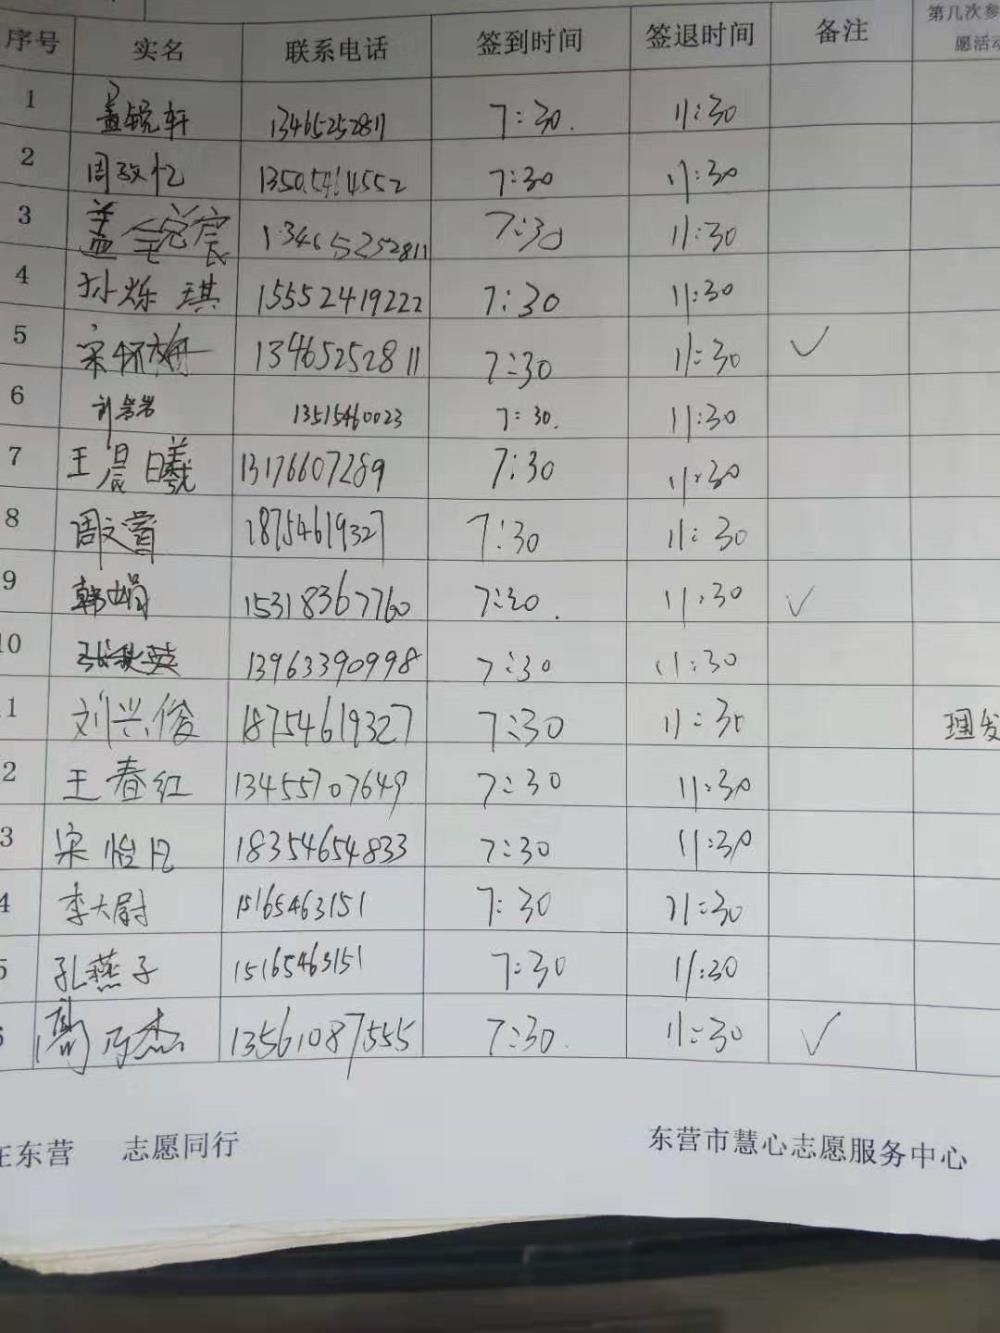 序号 实名 联系电话 签到时间 签退时间 备注 第几次参
愿活动
1 盖锐轩 13465252811 7:30. 11:30
2 周致忆 13505464552 7:30 11:30
3 盖 宸 13465252811 7:30 11:30
4 孙烁琪 15552419222 7:30 11:30
5 宋怀 13465252811 7:30 11:30 ✓
6 刘岩岩 13515460023 7:30. 11:30
7 王晨曦 13176607289 7:30 11:30
8 周文萱 18754619327 7:30 11:30
9 韩娟 15318367760 7:30. 11:30 ✓
10 张秋英 13963390998 7:30 11:30
1 刘兴俊 18754619327 7:30 11:30 理发
2 王春红 13455707649 7:30 11:30
3 宋怡凡 18354654833 7:30 11:30
4 李大尉 15165463151 7:30 11:30
5 孔燕子 15165463151 7:30 11:30
6 杰 13561087555 7:30. 11:30 ✓
在东营 志愿同行 东营市慧心志愿服务中心